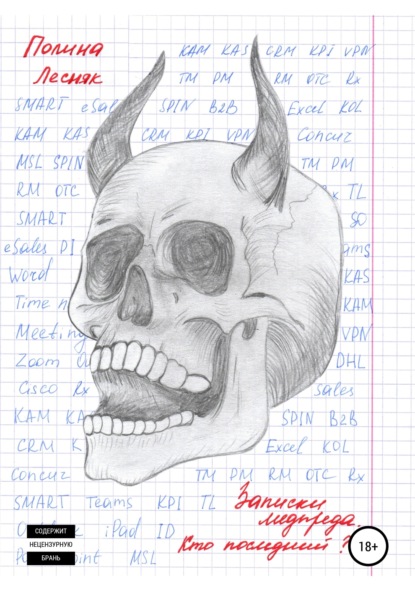 Полина KAM KAS CRM KPI VPN
Лесняк TM PM RM OTC Rx
SMART eSal SPIN B2B Excel KOL
KAM KAS CRM KPI VPN Concur
MSL SPIN TM PM
RM OTC x TL
SMART SO
eSales PI ams
Word KAS
Time m KAM
Meeting VPN
Zoom DHL
Cisco Rx Sales
KAM KA SPIN B2B
CRM K Excel KOL
Concur TM PM RM OTC Rx
SMART Teams KPI TL Записки
медпреда.
iPad ID
Кто последний?
int MSL
СОДЕРЖИТ
НЕЦЕНЗУРНУЮ
БРАНЬ
18+